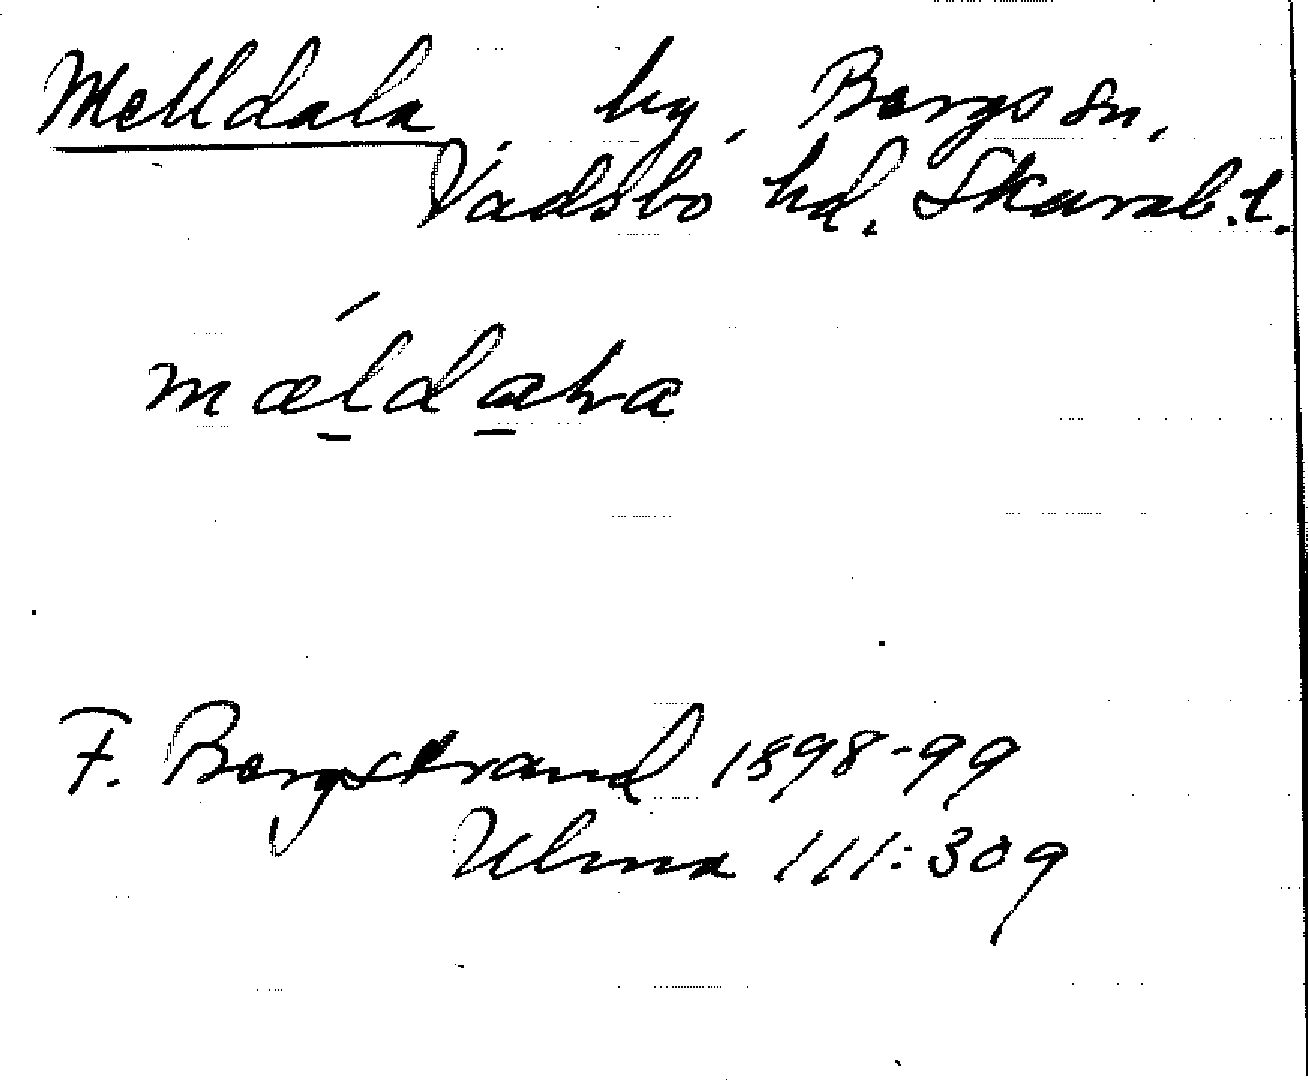 Melldala, by, Bergs sn,
Vadsbo hd, Skarab. l.
mældaɦa
F. Bergstrand 1898-99
Ulma 111:309